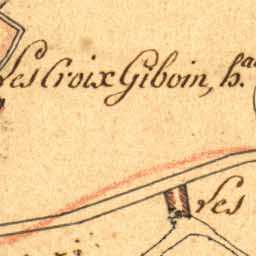 Les Croix Giboin, h.au
Les